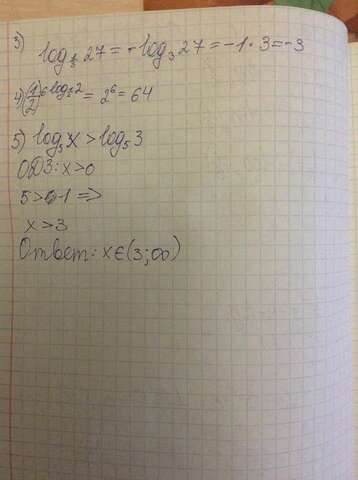 3) log_{1/3} 27 = -log_3 27 = -1 · 3 = -3
4) (1/2)^{6 log_2 2} = 2^6 = 64
5) log_5 x > log_5 3
ОДЗ: x > 0
5 > 1 =>
x > 3
Ответ: x ∈ (3; ∞)